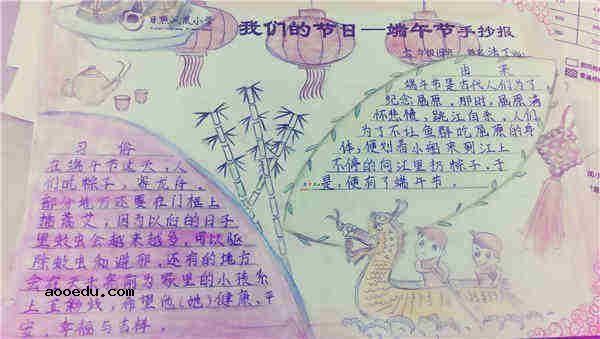 日照凤凰小学
我们的节日—端午节手抄报
由来
端午节是古代人们为了
纪念屈原，那时，屈原满
怀悲愤，跳江自杀，人们
为了不让鱼虾吃屈原的身
体，便划着小船来到江上
不停的向江里扔粽子，于
是，便有了端午节。
习俗
在端午节这天，人
们吃粽子，赛龙舟，
部分地方还要在门框上
插蒿艾，因为以后的日子
里蚊虫会越来越多，可以驱
除蚊虫和避邪，还有的地方
会 为家里的小孩系
上五彩线，希望他(她)健康、平
安、幸福与吉祥。
aooedu.com